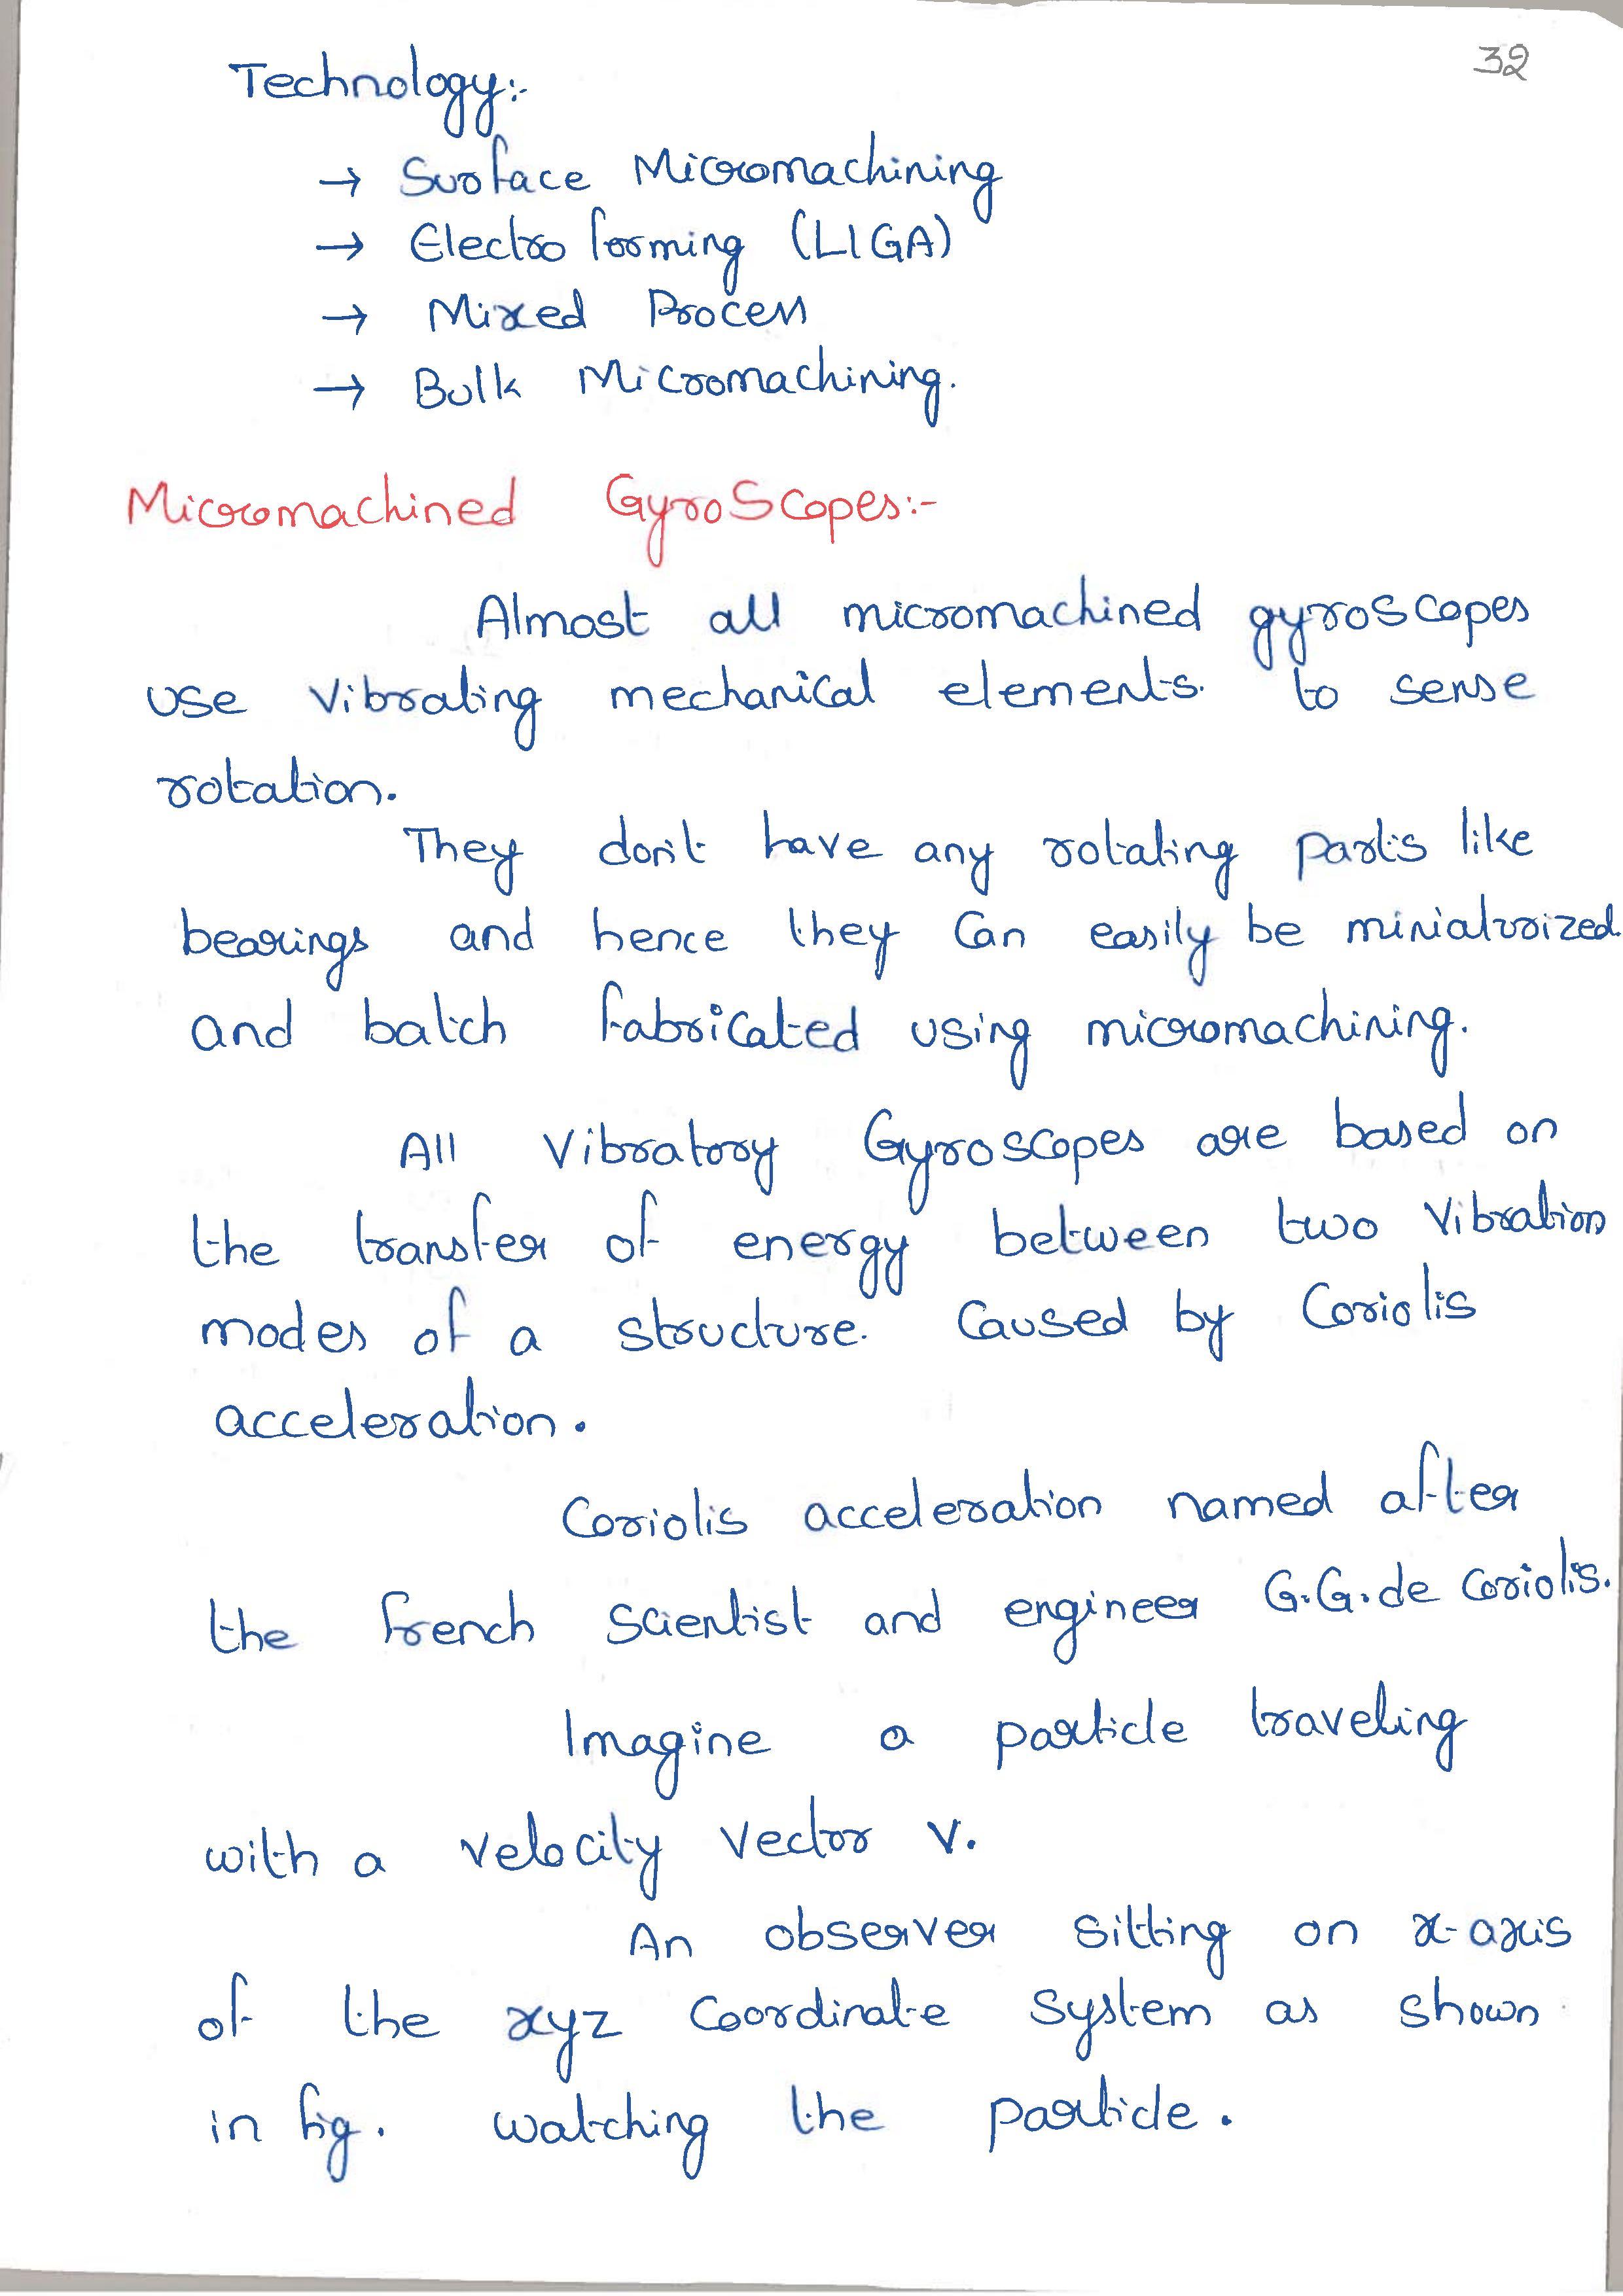 32
Technology:-
→ Surface Micromachining
→ Electro forming (LIGA)
→ Mixed Process
→ Bulk Micromachining.
Micromachined GyroScopes:-
Almost all micromachined gyroscopes
use vibrating mechanical elements. to sense
rotation.
They don't have any rotating parts like
bearings and hence they can easily be miniaturized.
and batch fabricated using micromachining.
All Vibratory Gyroscopes are based on
the transfer of energy between two vibration
modes of a structure. Caused by Coriolis
acceleration.
Coriolis acceleration named after
the french scientist and engineer G.G.de coriolis.
Imagine a particle traveling
with a velocity vector v.
An observer sitting on x-axis
of the xyz coordinate system as shown
in fig. watching the particle.